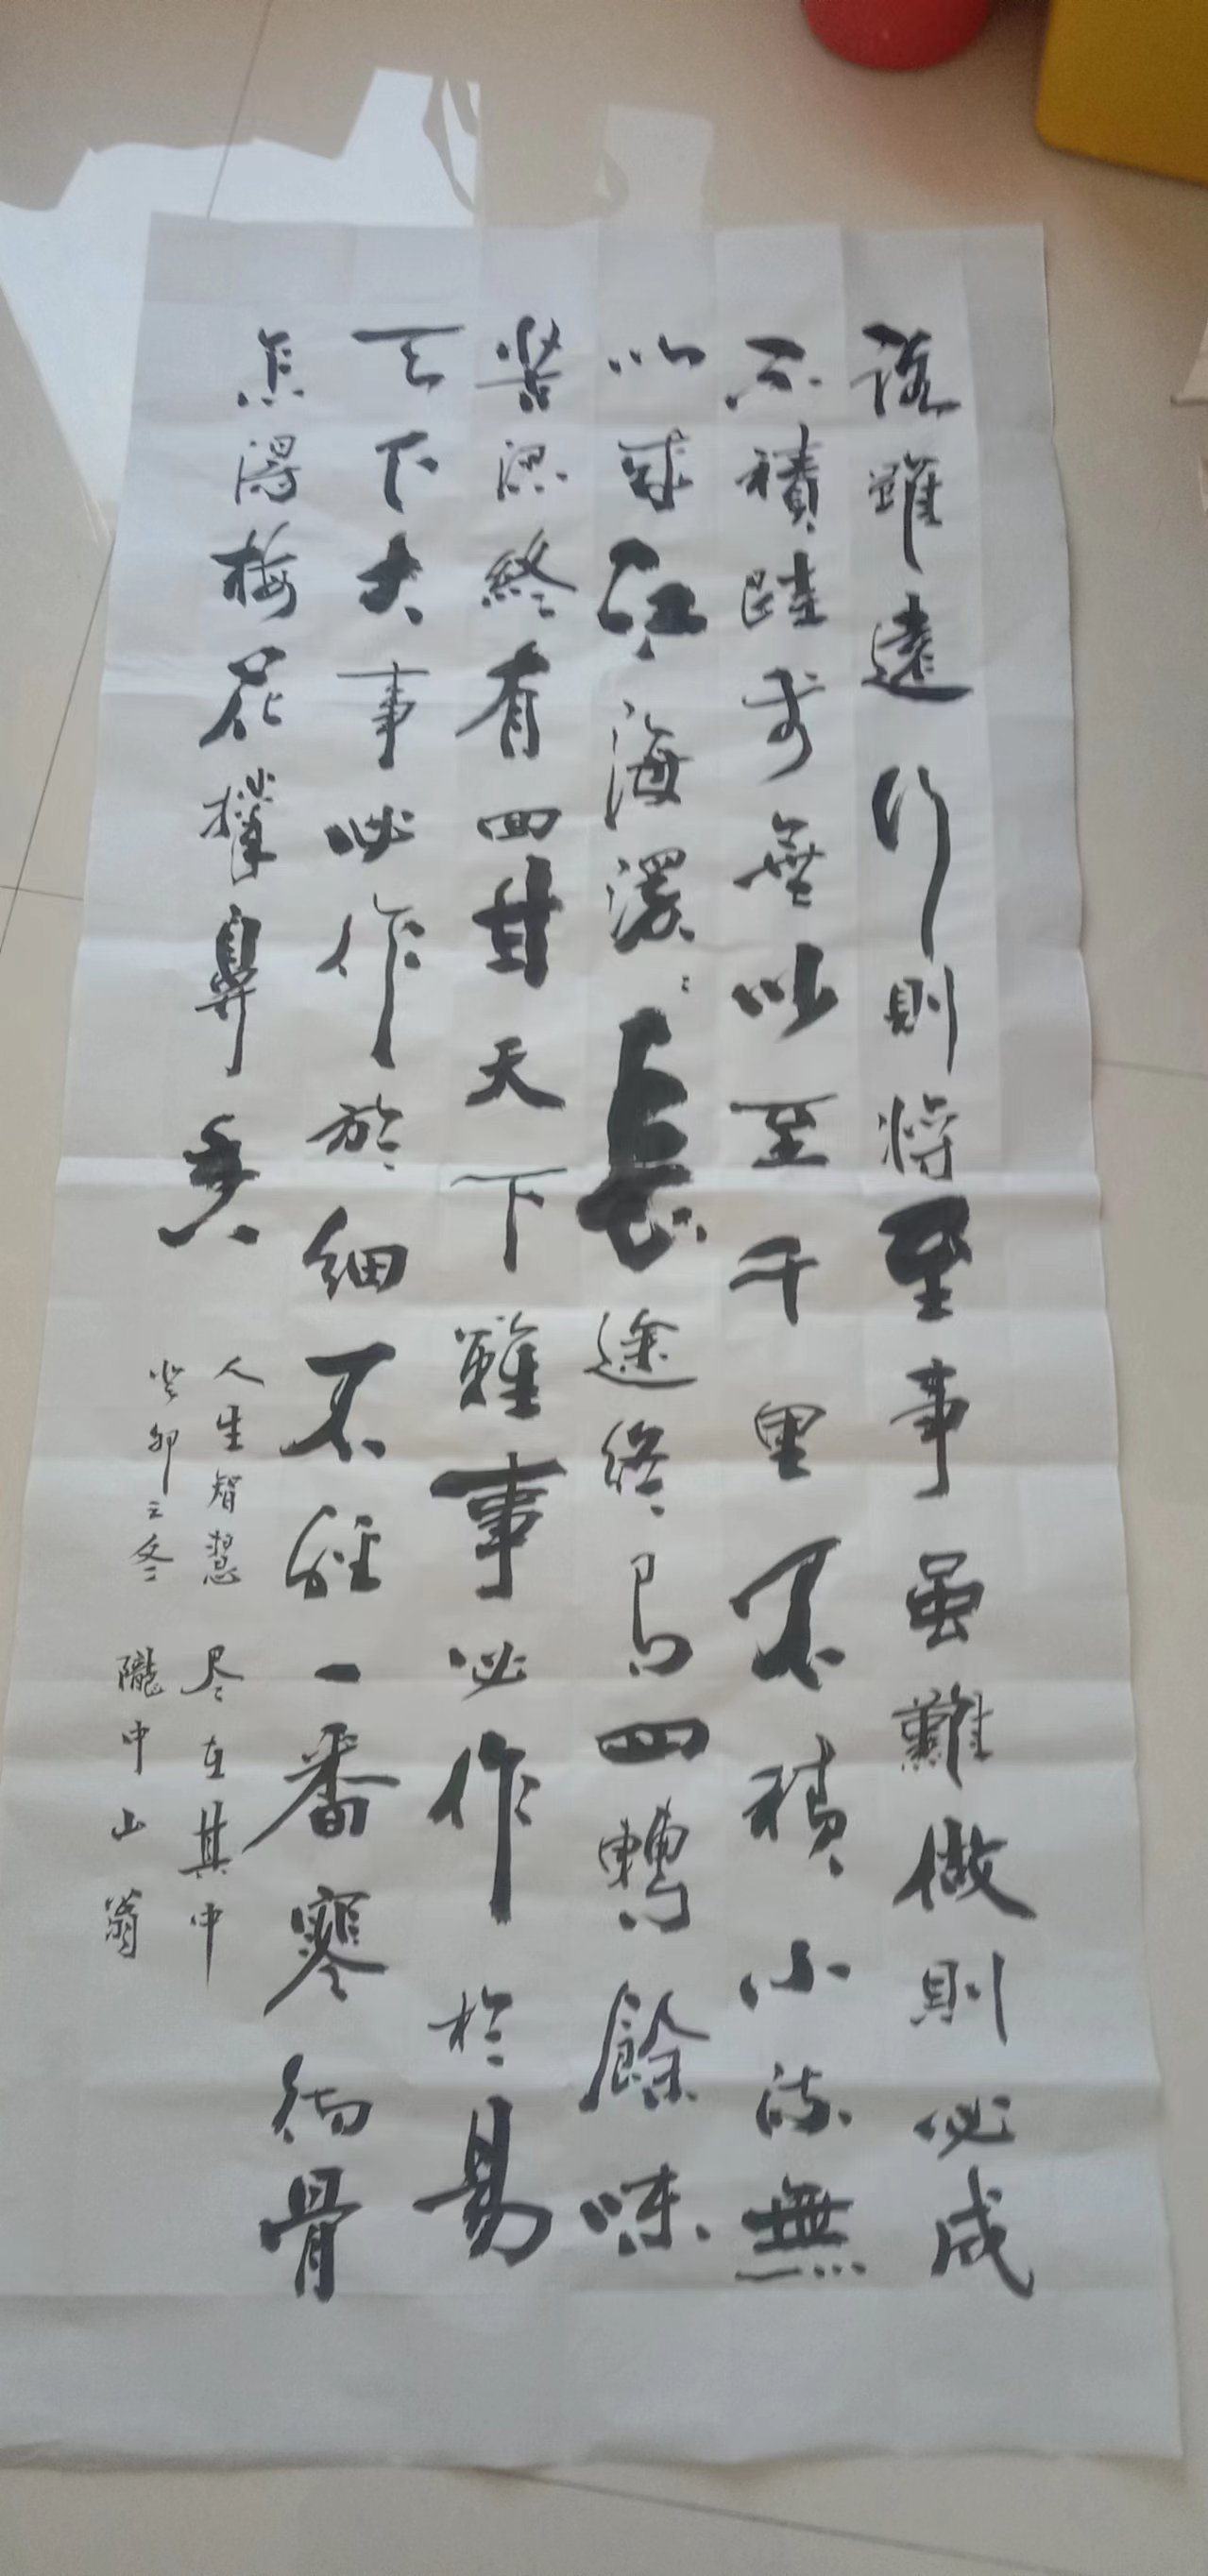 路雖遠行則將至事虽難做則必成
不積跬步無以至千里不積小流無
以成江海漫漫長途終有回轉餘味
苦澀終有回甘天下難事必作於易
天下大事必作於細不經一番寒徹骨
怎得梅花撲鼻香
人生智慧尽在其中
癸卯之冬隴中山翁